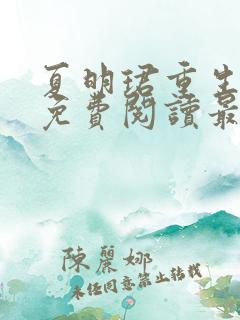 夏明珺重生
免費閱讀最
陳麗娜
未經同意禁止轉載